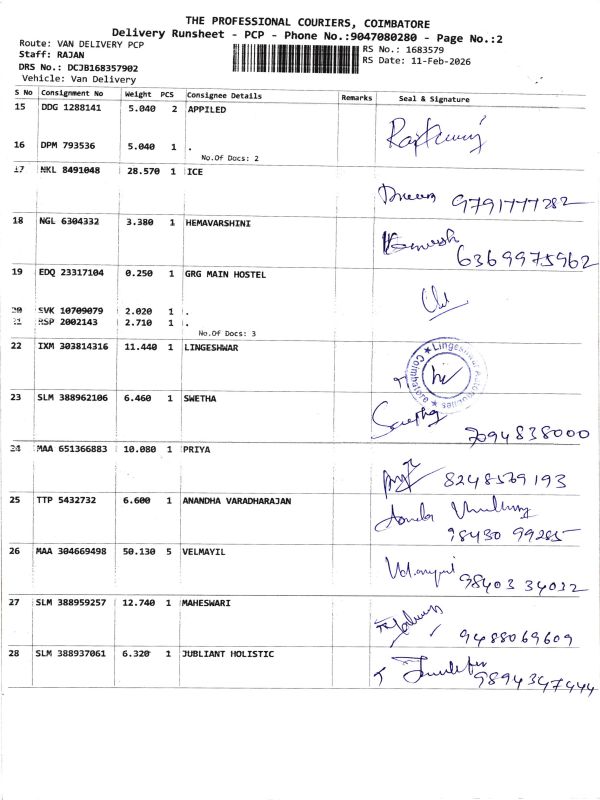 THE PROFESSIONAL COURIERS, COIMBATORE
Delivery Runsheet - PCP - Phone No.:9047080280 - Page No.:2
Route: VAN DELIVERY PCP
RS No.: 1683579
Staff: RAJAN
RS Date: 11-Feb-2026
DRS No.: DCJB168357902
Vehicle: Van Delivery
S No Consignment No Weight PCS Consignee Details Remarks Seal & Signature
15 DDG 1288141 5.040 2 APPILED
16 DPM 793536 5.040 1 .
No.Of Docs: 2
17 NKL 8491048 28.570 1 ICE
9791777282
18 NGL 6304332 3.380 1 HEMAVARSHINI
6369975962
19 EDQ 23317104 0.250 1 GRG MAIN HOSTEL
20 SVK 10709079 2.020 1 .
21 RSP 2002143 2.710 1 .
No.Of Docs: 3
22 IXM 303814316 11.440 1 LINGESHWAR
23 SLM 388962106 6.460 1 SWETHA
7094838000
24 MAA 651366883 10.080 1 PRIYA
8248569193
25 TTP 5432732 6.600 1 ANANDHA VARADHARAJAN
98430 99285
26 MAA 304669498 50.130 5 VELMAYIL
98403 34032
27 SLM 388959257 12.740 1 MAHESWARI
9488069609
28 SLM 388937061 6.320 1 JUBLIANT HOLISTIC
9894347444